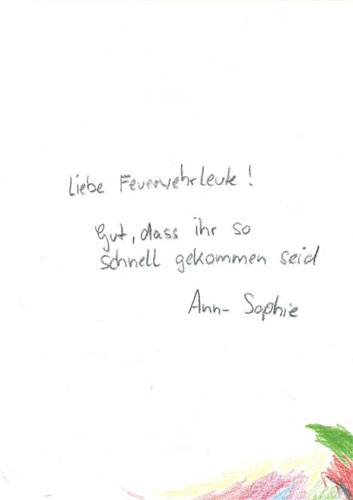 Liebe Feuerwehrleute!
Gut, dass ihr so
schnell gekommen seid
Ann- Sophie